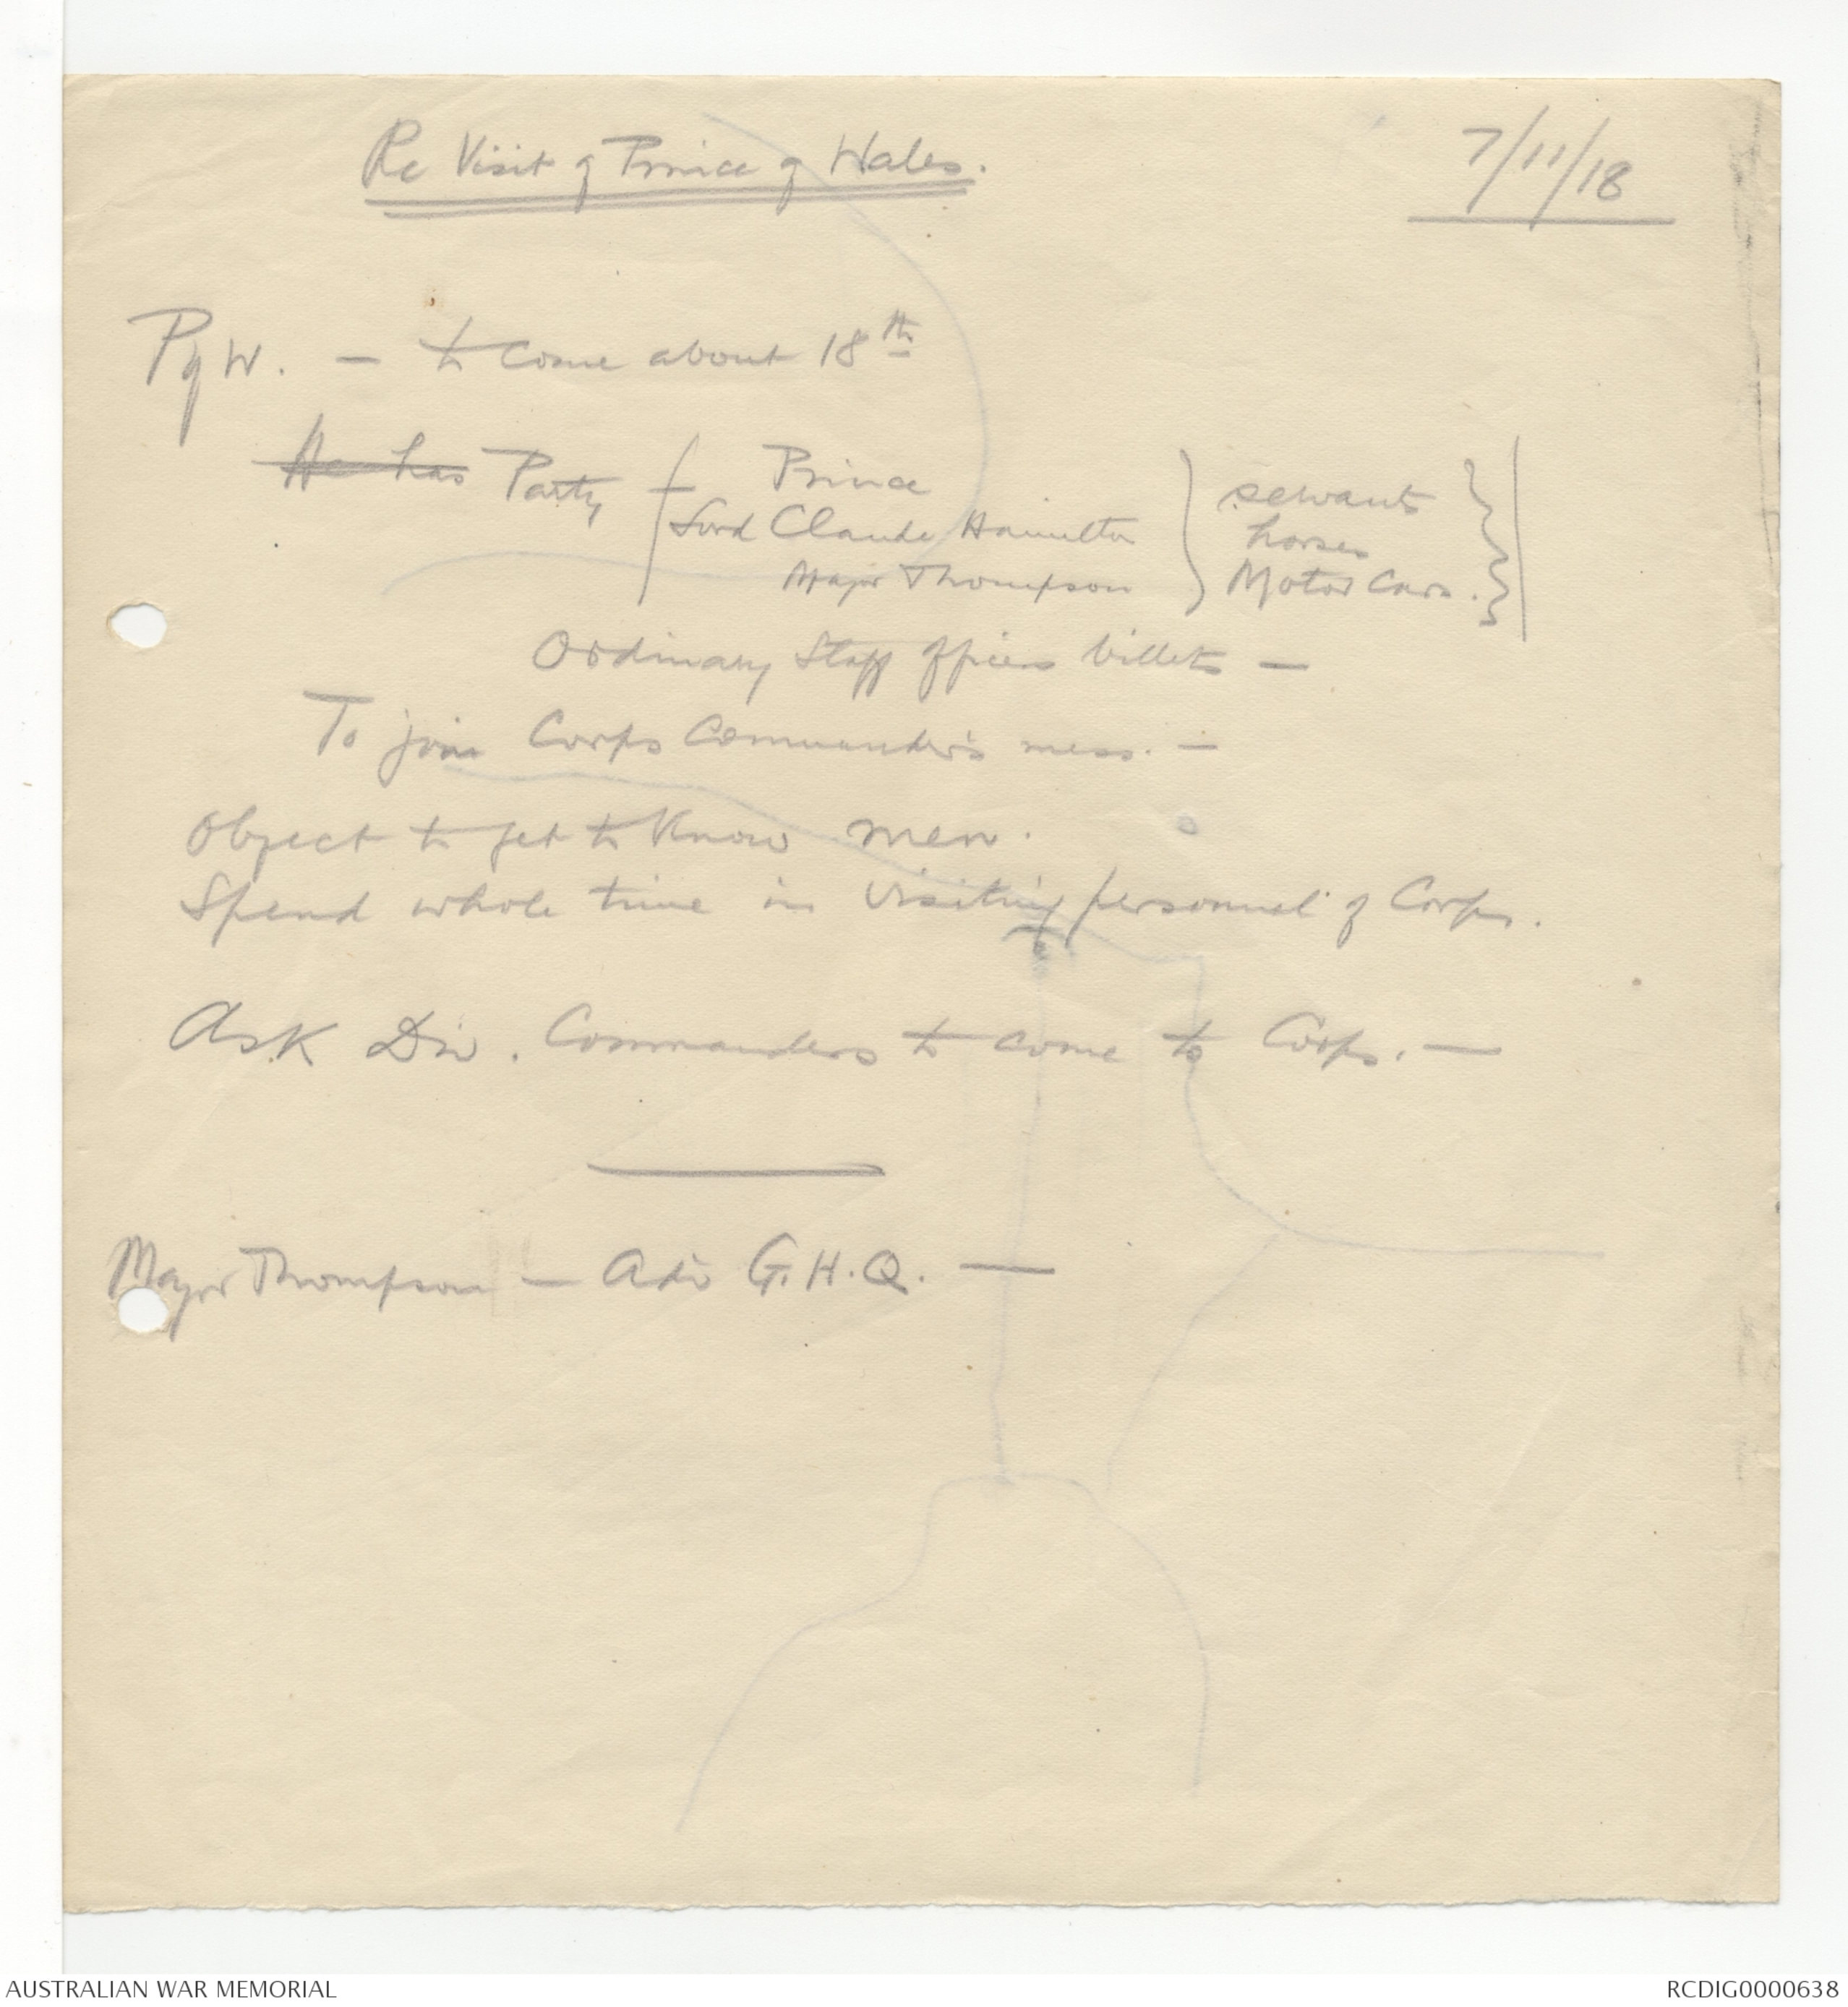 Re Visit of Prince of Wales.
7/11/18
P of W. — to come about 18th
He has Party { Prince } servants
Lord Claude Hamilton horses
Major Thompson Motor Cars.
Ordinary Staff Officers billets —
To join Corps Commander's mess. —
Object to get to Know men.
Spend whole time in visiting personnel of Corps.
Ask Div. Commanders to come to Corps. —
Major Thompson — Adv G.H.Q. —
AUSTRALIAN WAR MEMORIAL
RCDIG0000638